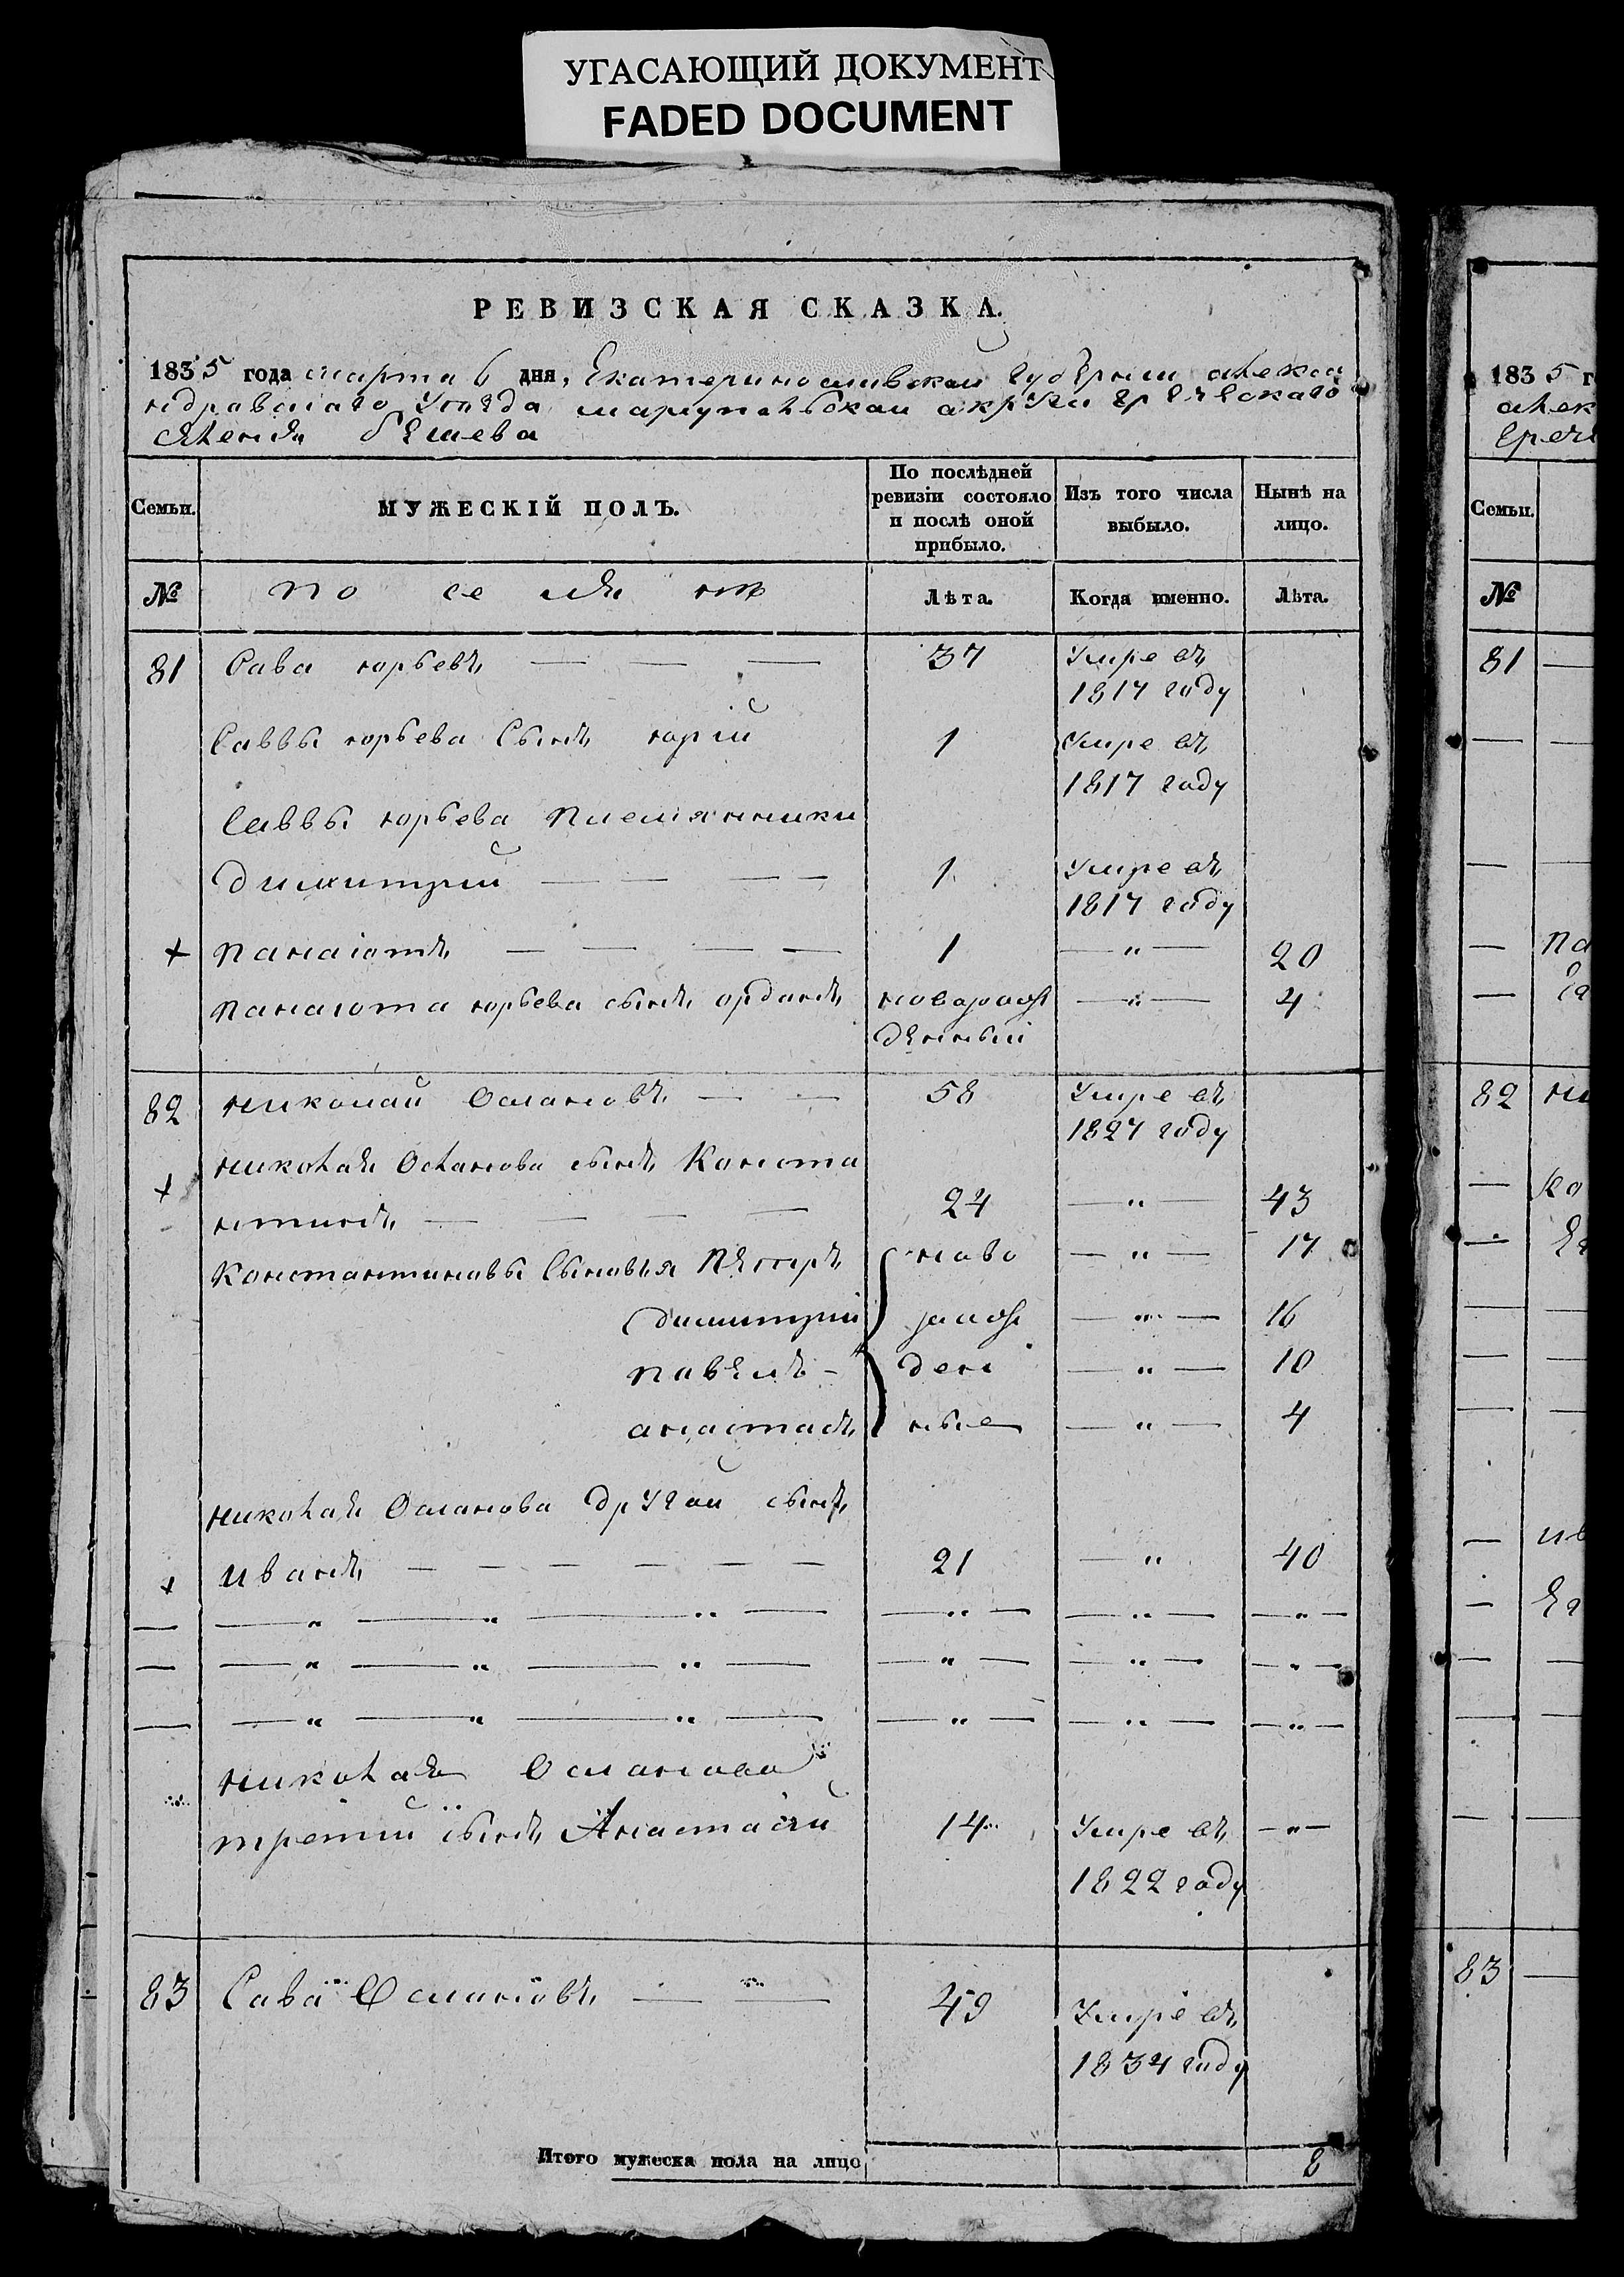 УГАСАЮЩИЙ ДОКУМЕНТ
FADED DOCUMENT
РЕВИЗСКАЯ СКАЗКА.
1835 года марта 6 дня, Екатеринославской губернии алекса
ндравскаго уезда мариупольской акруги греческаго
селения бешева
Семьи. МУЖЕСКІЙ ПОЛЪ. По послѣдней ревизіи состояло и послѣ оной прибыло. Изъ того числа выбыло. Нынѣ на лицо.
№ поселянъ Лѣта. Когда именно. Лѣта.
81 Сава юрьевъ — — — 37 Умре въ
1817 году
Саввы юрьева Сынъ юрій 1 Умре въ
1817 году
Саввы юрьева племянники
димитрий — — — — 1 Умре въ
1817 году
+ панаіотъ — — — — 1 — „ — 20
панаіота юрьева сынъ орданъ новорож — „ — 4
денный
82 николай Османовъ — — 58 Умре въ
1827 году
николая Османова сынъ Конста
+ нтинъ — — — — 24 — „ — 43
Константиновы Сыновья петръ ново — „ — 17
димитрий рож — „ — 16
павелъ — ден — „ — 10
анастасъ ные — „ — 4
николая Османова другой сынъ
+ иванъ — — — — — — 21 — „ 40
— — „ — „ — „ — — „ — — „ — — „ —
— — „ — „ — „ — — „ — — „ — — „ —
— — „ — „ — „ — — „ — — „ — — „ —
николая Османова
третий сынъ Анастасий 14 Умре въ — „ —
1822 году
83 Сава Османовъ — — 49 Умре въ
1834 году
Итого мужеска пола на лицо 8
1835 г
алек
Грече
Семьи.
№
81 —
— —
— —
— па
— 
82 ни
— ко
— 
— —
— —
— —
— ив
— 
— —
— —
— —
83 —